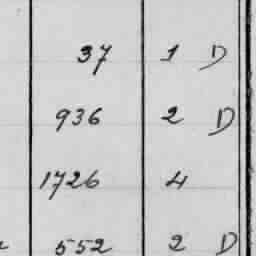 37 1 D
936 2 D
1726 4
552 2 D